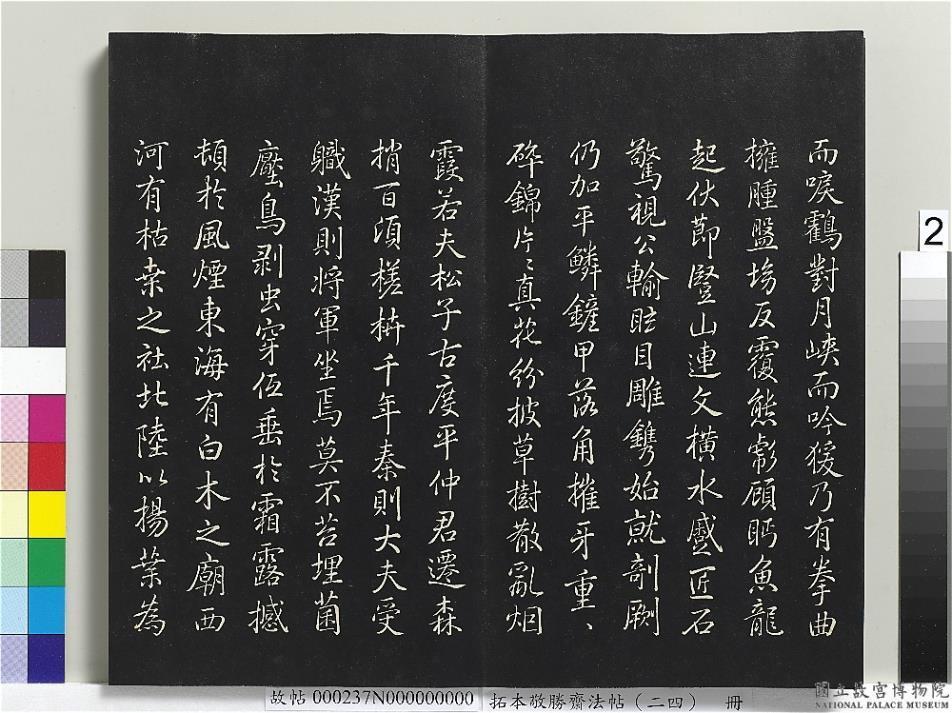 而唳鸖對月峽而吟猨乃有拳曲
擁腫盤坳反覆熊彪顧眄魚龍
起伏莭竪山連文橫水蹙匠石
驚視公輸眩目雕鐫始就剞劂
仍加平鱗鏟甲落角摧牙重〻
碎錦片〻真花紛披草樹散亂烟
霞若夫松子古度平仲君遷森
捎百頃槎枿千年秦則大夫受
軄漢則將軍坐焉莫不苔埋菌
壓鳥剥虫穿伍垂於霜露撼
頓於風煙東海有白木之廟西
河有枯桒之社北陸以揚葉為
2
故帖 000237N000000000 拓本敬勝齋法帖（二四） 冊
國立故宮博物院
NATIONAL PALACE MUSEUM